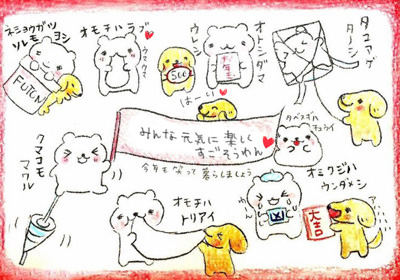 ネショウガツ
ソレモ ヨシ
FUTON
オモチハラブ
ウマウマ
ウレシ
500
オトシダマ
お年玉
タコアゲ
ターノシ
はーい
みんな 元気に 楽しく
すごそうわん
今年も 笑って 暮らしましょう
タベスギハ
チュウイ
クマコモ
マワル
オモチハ
トリアイ
オミクジハ
ウンダメシ
凶
大吉